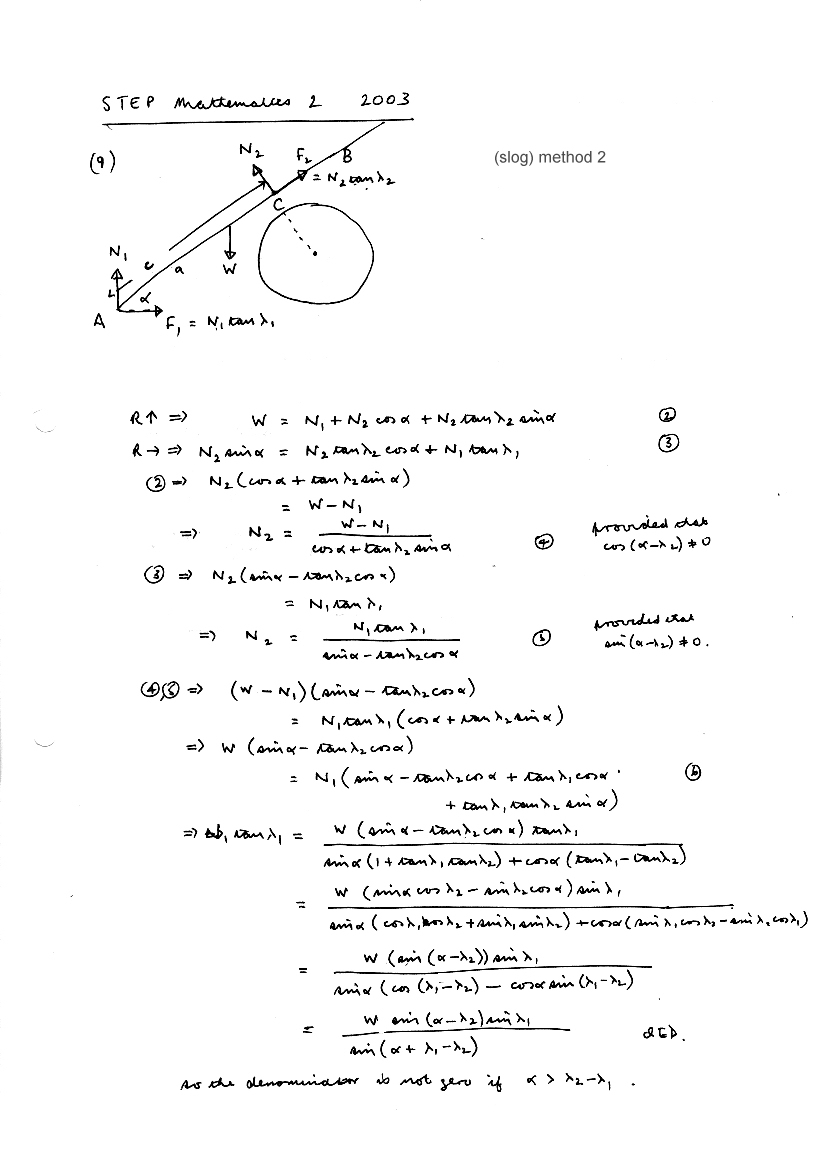 STEP Mathematics 2 2003
(9)
(slog) method 2
N₂
F₂
B
= N₂ tan λ₂
C
N₁
c
a
W
α
A
F₁ = N₁ tan λ₁
R↑ ⇒ W = N₁ + N₂ cos α + N₂ tan λ₂ sin α ②
R→ ⇒ N₂ sin α = N₂ tan λ₂ cos α + N₁ tan λ₁ ③
② ⇒ N₂ (cos α + tan λ₂ sin α)
= W − N₁
⇒ N₂ = (W − N₁) / (cos α + tan λ₂ sin α) ④ provided that
cos (α − λ₂) ≠ 0
③ ⇒ N₂ (sin α − tan λ₂ cos α)
= N₁ tan λ₁
⇒ N₂ = N₁ tan λ₁ / (sin α − tan λ₂ cos α) ⑤ provided that
sin (α − λ₂) ≠ 0.
④⑤ ⇒ (W − N₁)(sin α − tan λ₂ cos α)
= N₁ tan λ₁ (cos α + tan λ₂ sin α)
⇒ W (sin α − tan λ₂ cos α)
= N₁ (sin α − tan λ₂ cos α + tan λ₁ cos α ⑥
+ tan λ₁ tan λ₂ sin α)
⇒ tan λ₁ = W (sin α − tan λ₂ cos α) tan λ₁ / sin α (1 + tan λ₁ tan λ₂) + cos α (tan λ₁ − tan λ₂)
= W (sin α cos λ₂ − sin λ₂ cos α) sin λ₁ / sin α (cos λ₁ cos λ₂ + sin λ₁ sin λ₂) + cos α (sin λ₁ cos λ₂ − sin λ₂ cos λ₁)
= W (sin (α − λ₂)) sin λ₁ / sin α (cos (λ₁ − λ₂) − cos α sin (λ₁ − λ₂)
= W sin (α − λ₂) sin λ₁ / sin (α + λ₁ − λ₂) QED.
so the denominator is not zero if α > λ₂ − λ₁ .